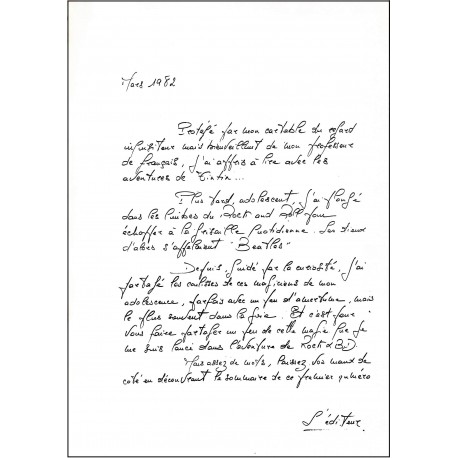 Mars 1982
Protégé par mon cartable du regard
inquisiteur mais bienveillant de mon professeur
de français, j'ai appris à lire avec les
aventures de Tintin...
Plus tard, adolescent, j'ai plongé
dans les limbes du Rock and Roll pour
échapper à la grisaille quotidienne. Les dieux
d'alors s'appelaient "Beatles"
Depuis, guidé par la curiosité, j'ai
partagé les coulisses de ces magiciens de mon
adolescence, parfois avec un peu d'amertume, mais
le plus souvent dans la joie. Et c'est pour
vous faire partager un peu de cette magie que je
me suis lancé dans l'aventure de Rock & BD
Mais assez de mots, laissez vos maux de
coté en découvrant le sommaire de ce premier numéro
L'éditeur.